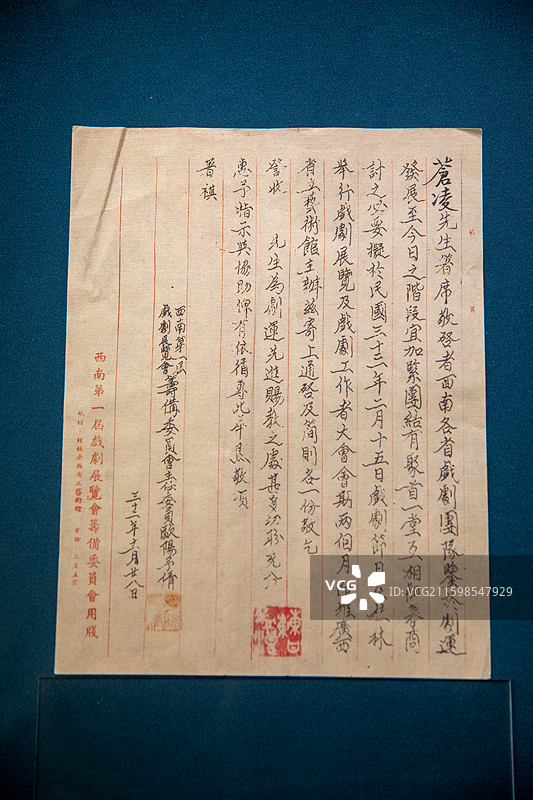 蒼凌先生著席敬啓者西南各省戲劇團隊鑒於劇運
發展至今日之階段宜加緊團結有聚首一堂互相
討之必要擬於民國三十三年二月十五日戲劇節日 林
舉行戲劇展覽及戲劇工作者大會會期兩個月 廣西
省立藝術館主辦茲寄上通啓及簡則各一份敬乞
詧收 先生為劇運先進賜教之處甚多
惠予指示與協助俾有依循專此布意敬頌
著祺
西南第一屆
戲劇展覽會
籌備委員會主任委員歐陽予倩
三十二年十一月廿八日
西南第一屆戲劇展覽會籌備委員會用牋
VCG211598547929
gettyimages®
视觉中国